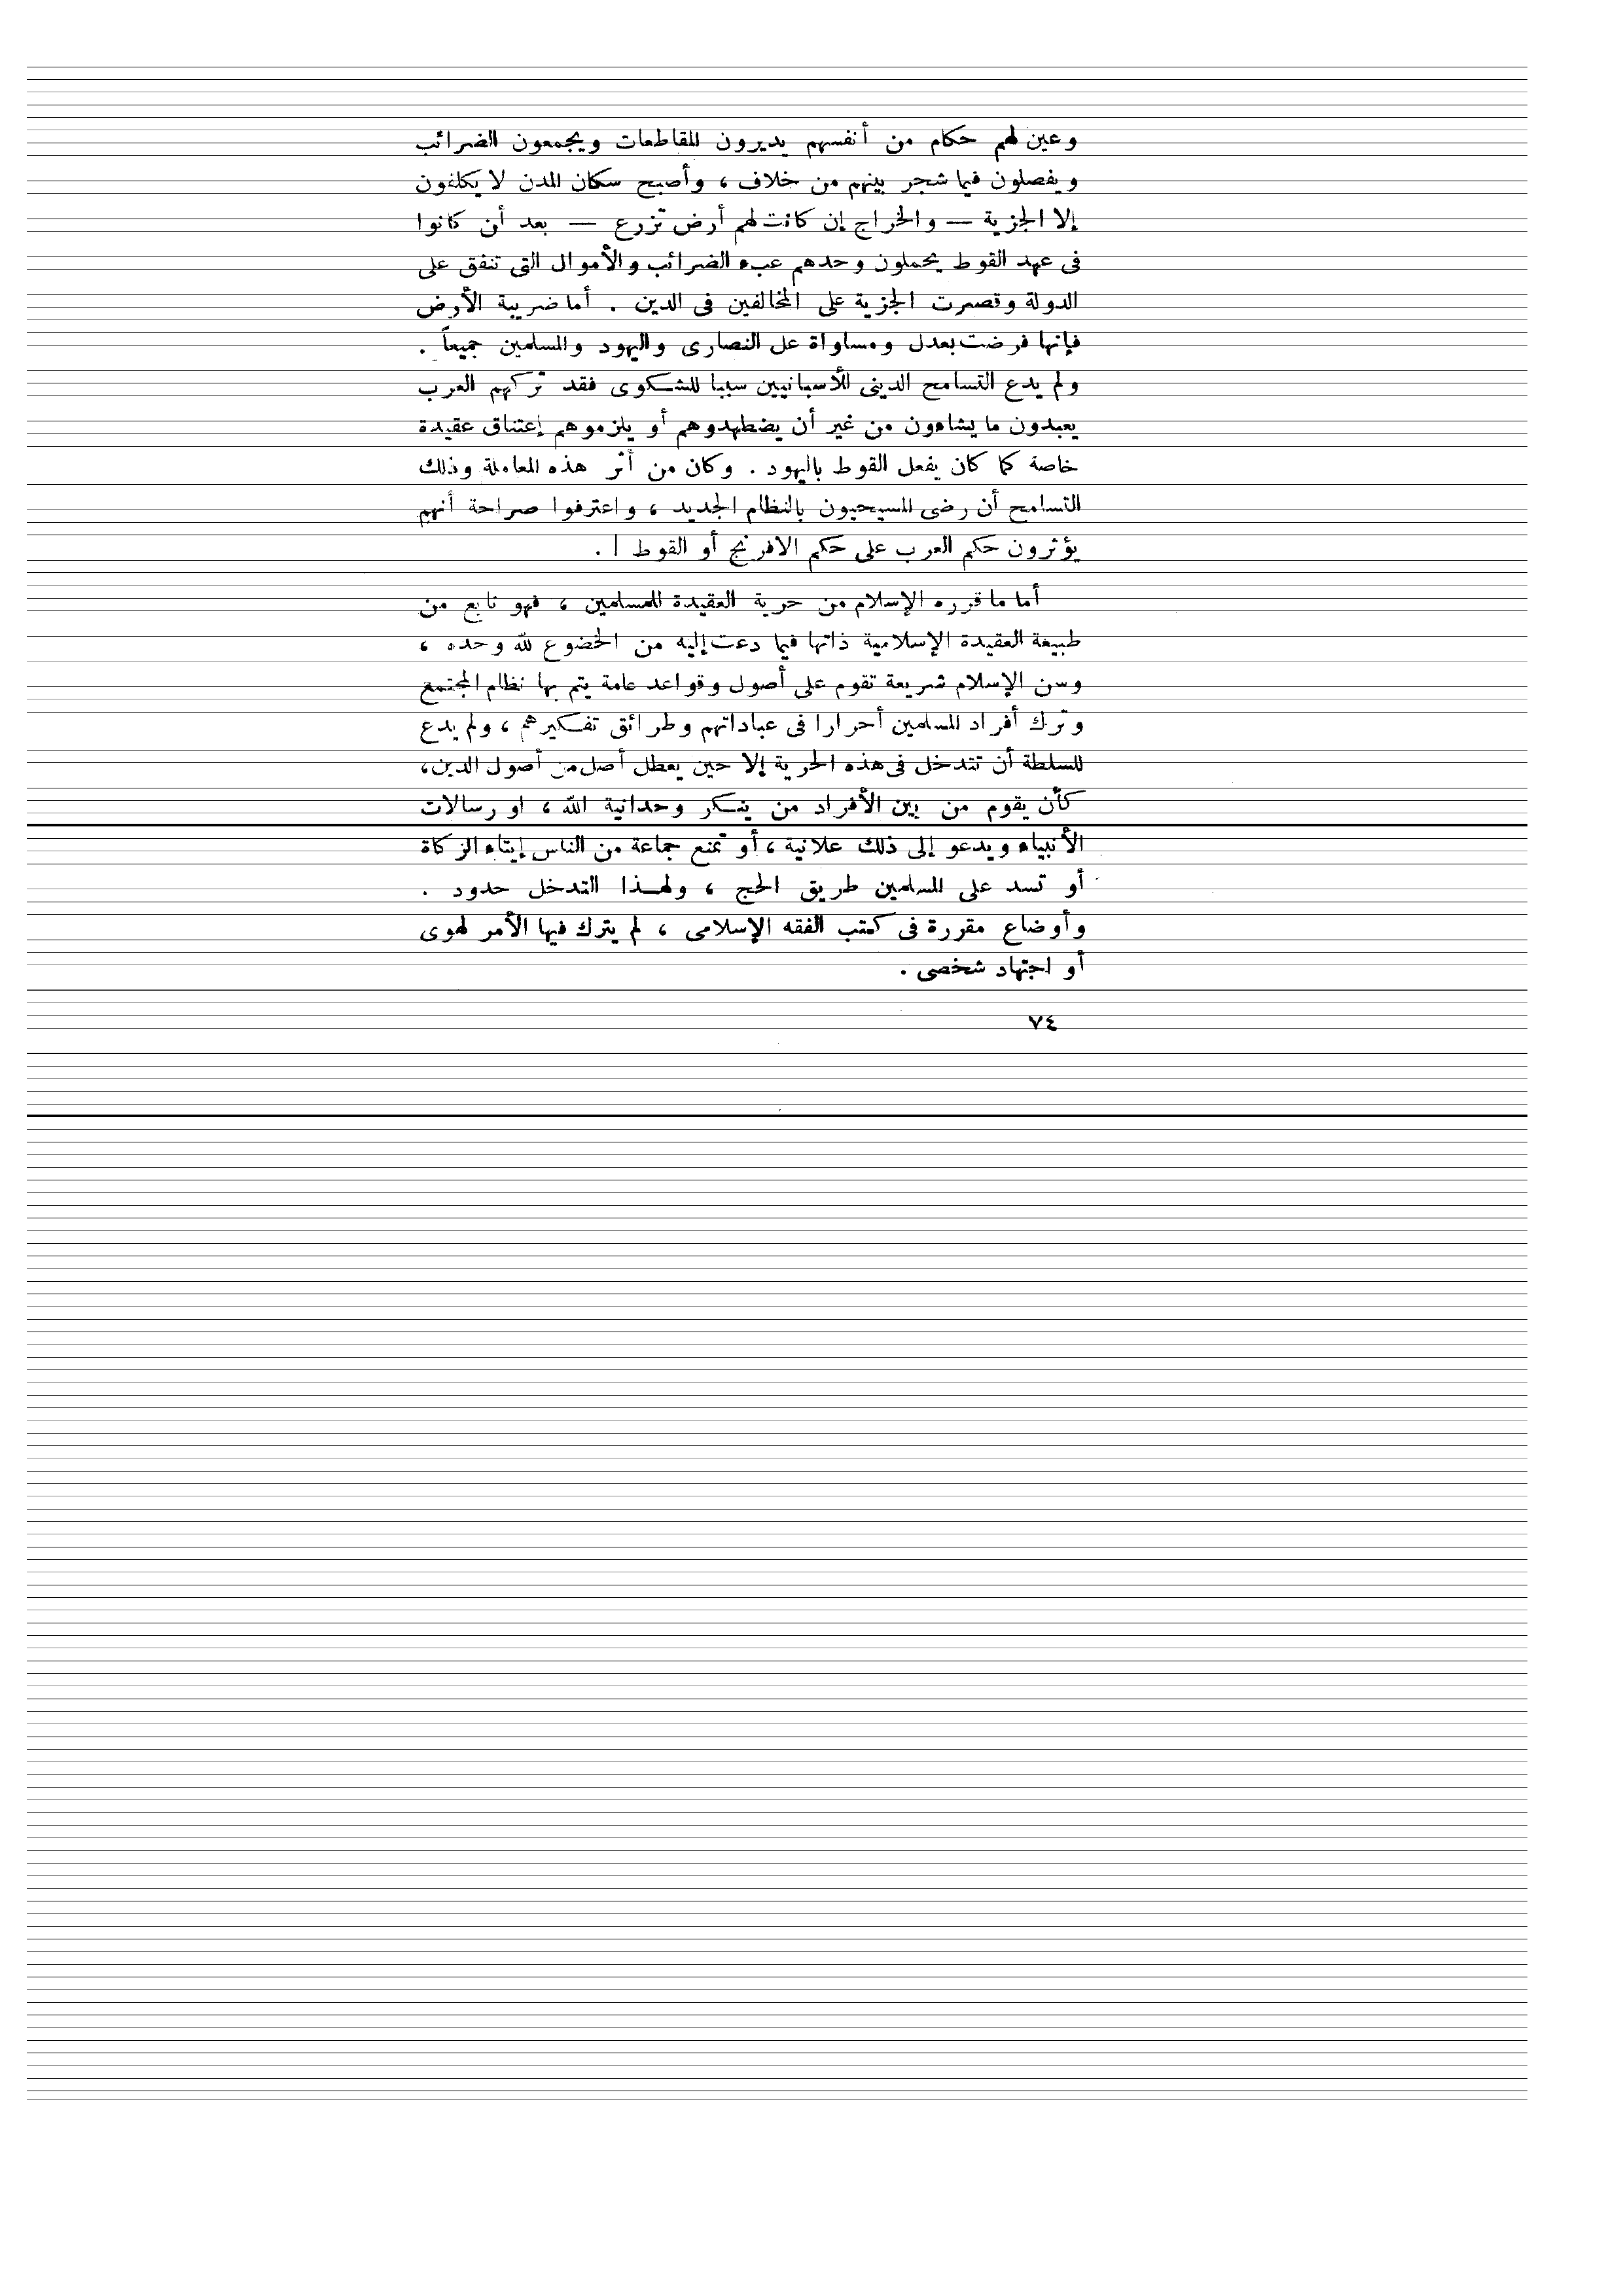 وعين لهم حكام من أنفسهم يديرون المقاطعات ويجمعون الضرائب
ويفصلون فيما شجر بينهم من خلاف ، وأصبح سكان المدن لا يكلفون
إلا الجزية — والخراج إن كانت لهم أرض تزرع — بعد أن كانوا
فى عهد القوط يحملون وحدهم عبء الضرائب والأموال التى تنفق على
الدولة وقصرت الجزية على المخالفين فى الدين . أما ضريبة الأرض
فإنها فرضت بعدل ومساواة عل النصارى واليهود والمسلمين جميعاً .
ولم يدع التسامح الدينى للأسبانيين سببا للشكوى فقد تركهم العرب
يعبدون ما يشاءون من غير أن يضطهدوهم أو يلزموهم إعتناق عقيدة
خاصة كما كان يفعل القوط باليهود . وكان من أثر هذه المعاملة وذلك
التسامح أن رضى المسيحيون بالنظام الجديد ، واعترفوا صراحة أنهم
يؤثرون حكم العرب على حكم الافرنج أو القوط ا .
أما ما قرره الإسلام من حرية العقيدة للمسلمين ، فهو نابع من
طبيعة العقيدة الإسلامية ذاتها فيما دعت إليه من الخضوع لله وحده ،
وسن الإسلام شريعة تقوم على أصول وقواعد عامة يتم بها نظام المجتمع
وترك أفراد المسلمين أحرارا فى عباداتهم وطرائق تفكيرهم ، ولم يدع
للسلطة أن تتدخل فى هذه الحرية إلا حين يعطل أصل من أصول الدين،
كأن يقوم من بين الأفراد من ينكر وحدانية الله ، او رسالات
الأنبياء ويدعو إلى ذلك علانية ، أو تمنع جماعة من الناس إيتاء الزكاة
أو تسد على المسلمين طريق الحج ، ولهذا التدخل حدود .
وأوضاع مقررة فى كتب الفقه الإسلامى ، لم يترك فيها الأمر لهوى
أو اجتهاد شخصى .
٧٤